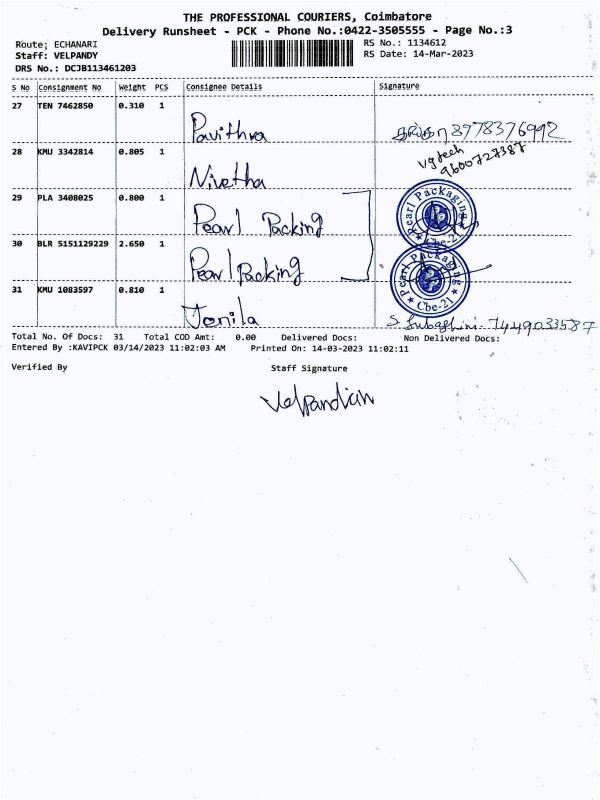 THE PROFESSIONAL COURIERS, Coimbatore
Delivery Runsheet - PCK - Phone No.:0422-3505555 - Page No.:3
Route; ECHANARI RS No.: 1134612
Staff: VELPANDY RS Date: 14-Mar-2023
DRS No.: DCJB113461203
S No Consignment No Weight PCS Consignee Details Signature
27 TEN 7462850 0.310 1
Pavithra 8778376992
28 KMU 3342814 0.805 1 Vgtech
9600727387
Nivetha
29 PLA 3408025 0.800 1
Pearl Packing
Pearl Packaging
Cbe-21
30 BLR 5151129229 2.650 1
Pearl Packing
Pearl Packaging
Cbe-21
31 KMU 1083597 0.810 1
Jenila
S. Subashini 7449033587
Total No. Of Docs: 31 Total COD Amt: 0.00 Delivered Docs: Non Delivered Docs:
Entered By :KAVIPCK 03/14/2023 11:02:03 AM Printed On: 14-03-2023 11:02:11
Verified By Staff Signature
Velpandian